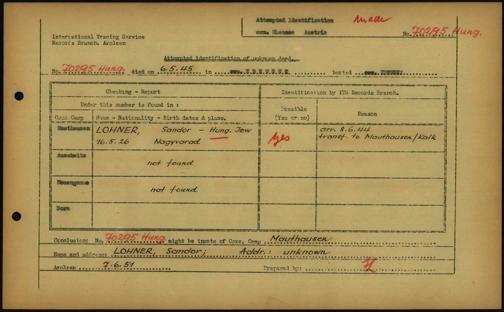 Attempted Identification made
conc. Ebensee Austria No. 70295 Hung.
International Tracing Service
Records Branch, Arolsen
Attempted identification of unknown dead.
No. 70295 Hung. died on 6.5.45 in tested
Checking - Report
Identification by ITS Records Branch.
Under this number is found in :
Possible (Yes or no)
Reason
Conc. Camp Name - Nationality - Birth dates & place.
Mauthausen LOHNER, Sandor - Hung. Jew
16.5.26 Nagyvarad
Yes
arr. 8.6.44
transf. to Mauthausen/Kdk
Auschwitz
not found
Neuengamme
not found
Dora
Conclusion: No. 70295 Hung. might be inmate of Conc. Camp Mauthausen
Name and address: LOHNER, Sandor; Addr.: unknown
Arolsen 7.6.51 Prepared by: